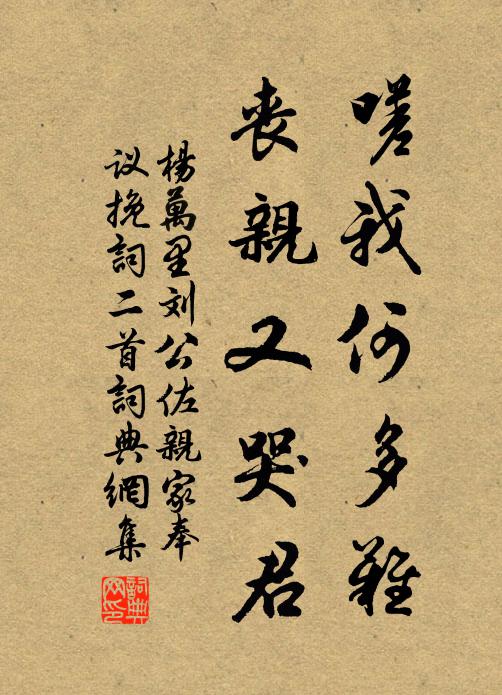 嗟我何多難
喪親又哭君
楊萬里刘公佐親家奉
议挽詞二首詞典網集
詞典网印